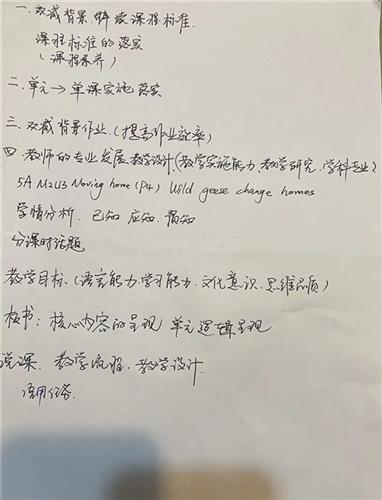 一. 双减背景. 解读课程标准.
课程标准的落实
(课程素养)
二. 单元→单课实施落实
三. 双减背景作业. (提高作业效率)
四. 教师的专业发展. 教学设计. (教学实施能力. 教学研究. 学科专业)
5A M2U3 Moving home (P4) Wild geese change homes
学情分析. 已知 应知 预知
分课时话题
教学目标 (语言能力. 学习能力. 文化意识. 思维品质)
板书: 核心内容的呈现 单元逻辑呈现
说课. 教学流程. 教学设计.
语用任务.